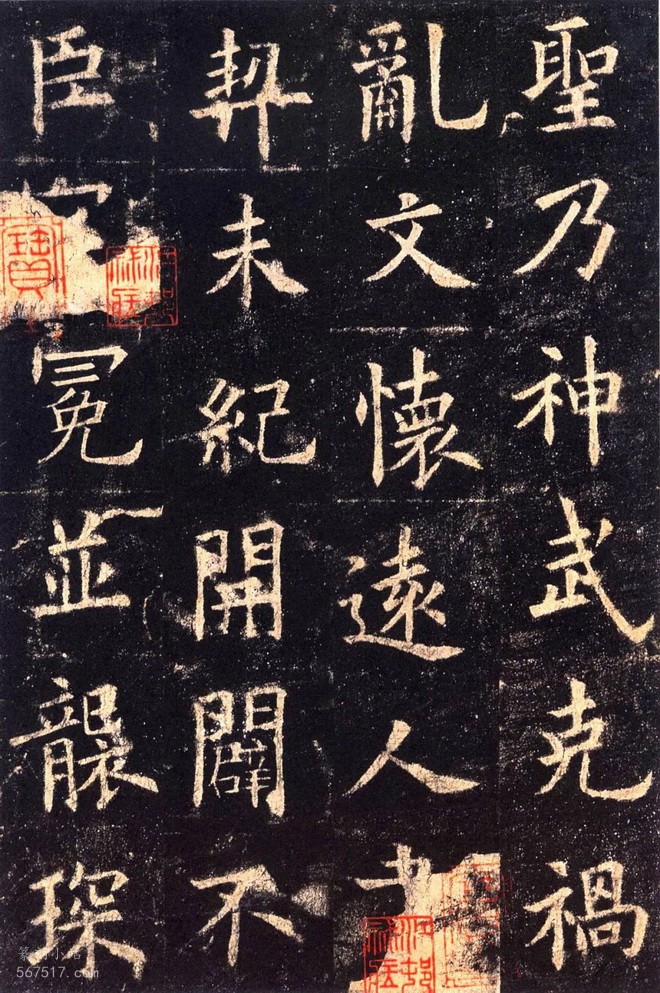 聖乃神武克禍
亂文懷遠人
契未紀開闢不
臣冕並襲琛
567517.com